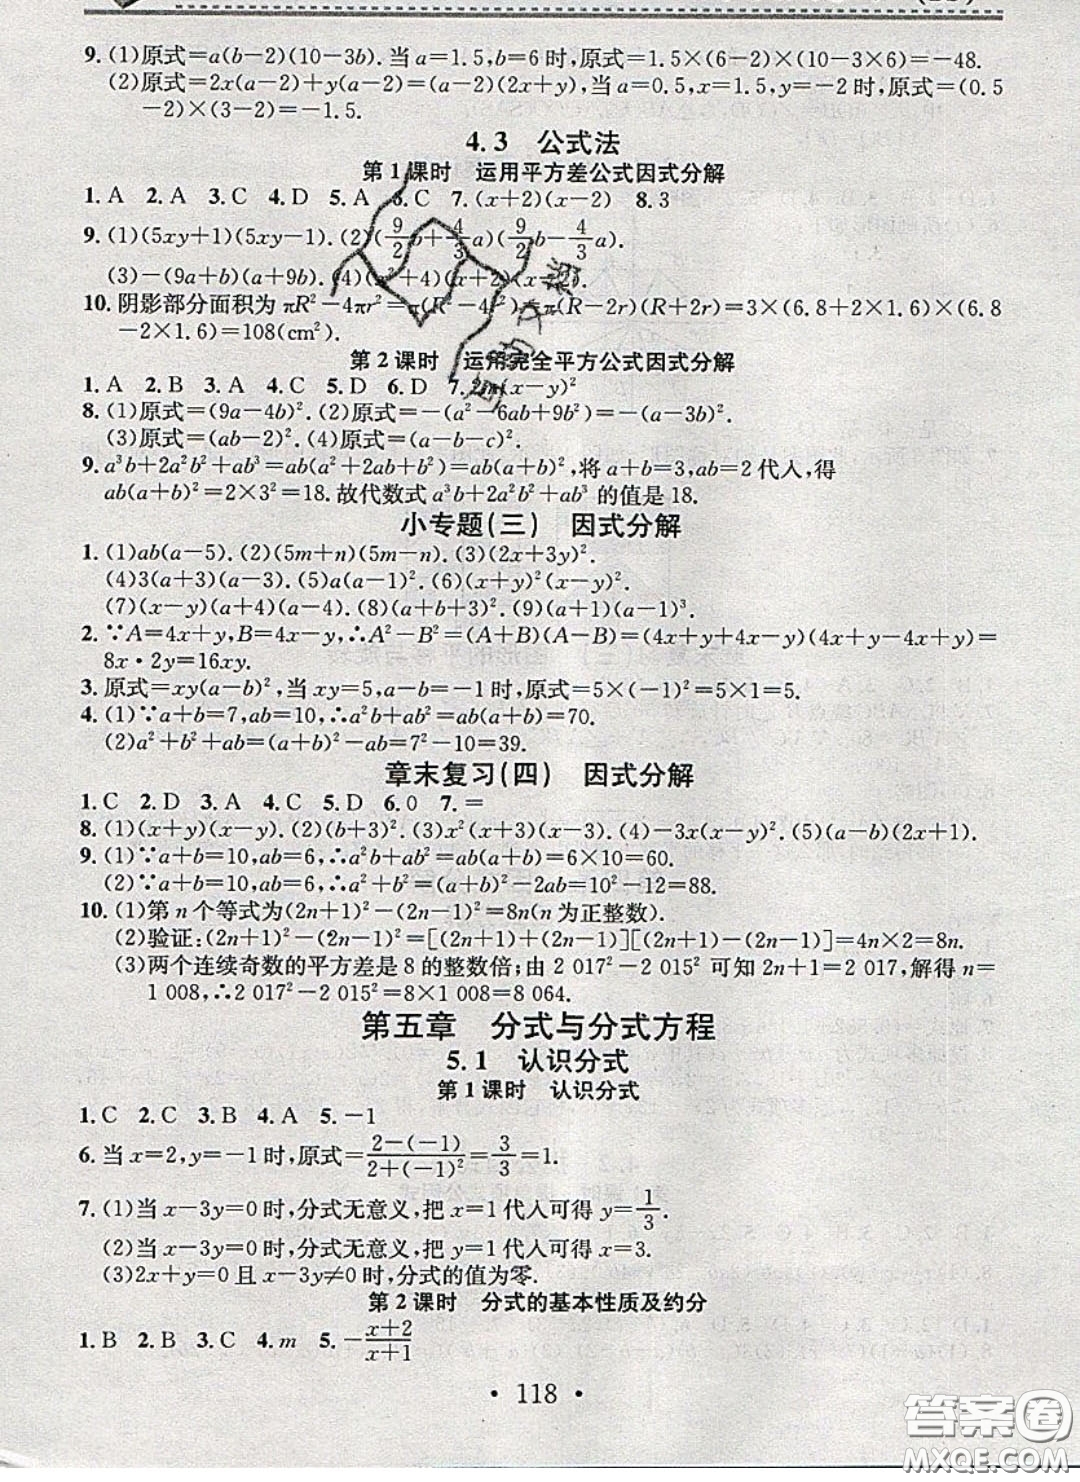 9. (1)原式=a(b-2)(10-3b).当a=1.5,b=6时,原式=1.5×(6-2)×(10-3×6)=-48.
(2)原式=2x(a-2)+y(a-2)=(a-2)(2x+y),当a=0.5,x=1.5,y=-2时,原式=(0.5
-2)×(3-2)=-1.5.
4.3 公式法
第1课时 运用平方差公式因式分解
1. A 2. A 3. C 4. D 5. A 6. C 7. (x+2)(x-2) 8. 3
9. (1)(5xy+1)(5xy-1). (2)(9/2 b+4/3 a)(9/2 b-4/3 a).
(3)-(9a+b)(a+9b). (4)(x²+4)(x+2)(x-2).
10. 阴影部分面积为πR²-4πr²=π(R²-4r²)=π(R-2r)(R+2r)=3×(6.8+2×1.6)×(6.8
-2×1.6)=108(cm²).
第2课时 运用完全平方公式因式分解
1. A 2. B 3. A 4. C 5. D 6. D 7. 2m(x-y)²
8. (1)原式=(9a-4b)². (2)原式=-(a²-6ab+9b²)=-(a-3b)².
(3)原式=(ab-2)². (4)原式=(a-b-c)².
9. a³b+2a²b²+ab³=ab(a²+2ab+b²)=ab(a+b)²,将a+b=3,ab=2代人,得
ab(a+b)²=2×3²=18.故代数式a³b+2a²b²+ab³的值是18.
小专题(三) 因式分解
1. (1)ab(a-5). (2)(5m+n)(5m-n). (3)(2x+3y)².
(4)3(a+3)(a-3). (5)a(a-1)². (6)(x+y)²(x-y)².
(7)(x-y)(a+4)(a-4). (8)(a+b+3)². (9)(a+1)(a-1)³.
2. ∵A=4x+y,B=4x-y,∴A²-B²=(A+B)(A-B)=(4x+y+4x-y)(4x+y-4x+y)=
8x·2y=16xy.
3. 原式=xy(a-b)²,当xy=5,a-b=-1时,原式=5×(-1)²=5×1=5.
4. (1)∵a+b=7,ab=10,∴a²b+ab²=ab(a+b)=70.
(2)a²+b²+ab=(a+b)²-ab=7²-10=39.
章末复习(四) 因式分解
1. C 2. D 3. A 4. C 5. D 6. 0 7. =
8. (1)(x+y)(x-y). (2)(b+3)². (3)x²(x+3)(x-3). (4)-3x(x-y)². (5)(a-b)(2x+1).
9. (1)∵a+b=10,ab=6,∴a²b+ab²=ab(a+b)=6×10=60.
(2)∵a+b=10,ab=6,∴a²+b²=(a+b)²-2ab=10²-12=88.
10. (1)第n个等式为(2n+1)²-(2n-1)²=8n(n为正整数).
(2)验证:(2n+1)²-(2n-1)²=[(2n+1)+(2n-1)][(2n+1)-(2n-1)]=4n×2=8n.
(3)两个连续奇数的平方差是8的整数倍;由2 017²-2 015²可知2n+1=2 017,解得n=
1 008,∴2 017²-2 015²=8×1 008=8 064.
第五章 分式与分式方程
5.1 认识分式
第1课时 认识分式
1. C 2. C 3. B 4. A 5. -1
6. 当x=2,y=-1时,原式=2-(-1)/2+(-1)²=3/3=1.
7. (1)当x-3y=0时,分式无意义,把x=1代人可得y=1/3.
(2)当x-3y=0时,分式无意义,把y=1代人可得x=3.
(3)2x+y=0且x-3y≠0时,分式的值为零.
第2课时 分式的基本性质及约分
1. B 2. B 3. C 4. m 5. -x+2/x+1
· 118 ·
答案圈
MXQE.COM